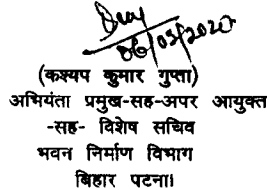 06/03/2020
(कश्यप कुमार गुप्ता)
अभियंता प्रमुख-सह-अपर आयुक्त
-सह- विशेष सचिव
भवन निर्माण विभाग
बिहार पटना।